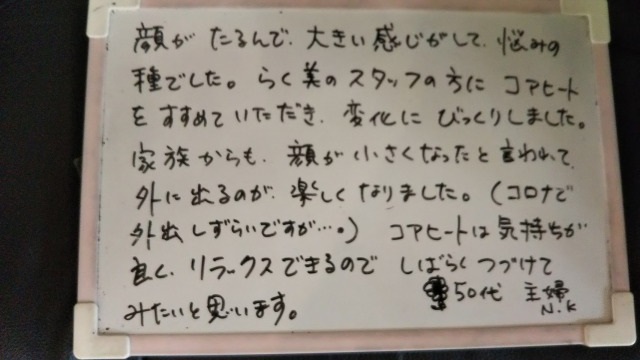 顔が たるんで、大きい感じがして、悩みの
種でした。らく美のスタッフの方に コアヒート
をすすめていただき、変化に びっくりしました。
家族からも、顔が小さくなったと言われて、
外に出るのが、楽しくなりました。(コロナで
外出しずらいですが…。) コアヒートは気持ちが
良く、リラックスできるので しばらくつづけて
みたいと思います。
50代 主婦
N.K